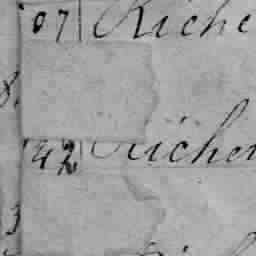 07 Riche
8
42 Richer
3